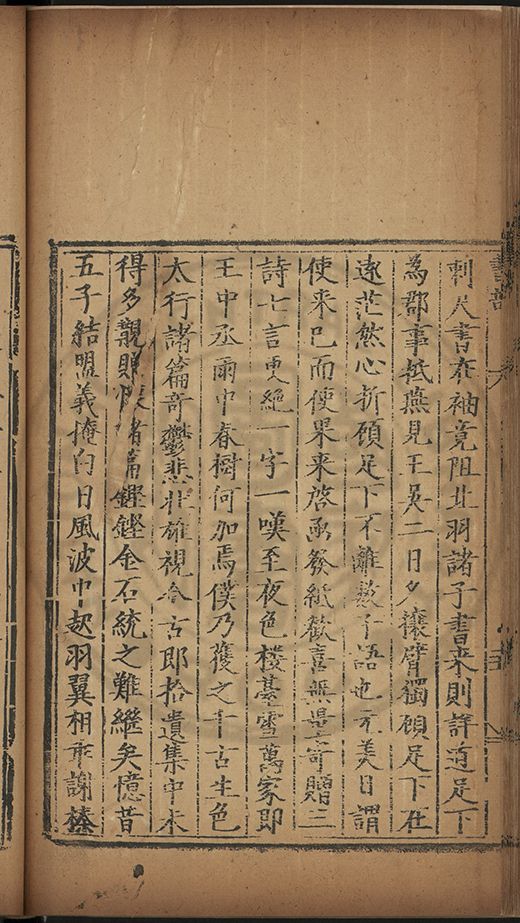 刺尺書在袖竟阻北羽諸子書来則詳道足下
為郡事抵燕見王吳二日夕攘臂獨頋足下在
遠茫然心折頋足下不離數子語也元美日謂
使来已而使果来啓函發紙歡喜無量寄贈三
詩七言更絶一字一嘆至夜色樓臺雪萬家即
王中丞雨中春樹何加焉僕乃䕶之千古生色
太行諸篇奇鬱悲壯雄視今古郎拾遺集中未
得多覯賜諸篇鏗鏗金石統之難繼矣憶昔
五子結盟義掩白日風波中起羽翼相乖謝榛